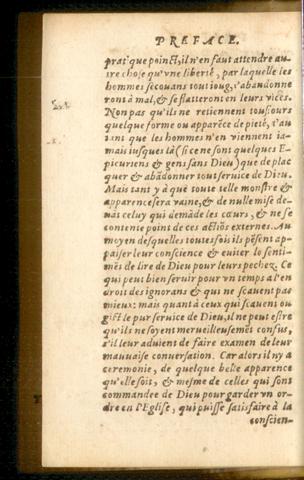 PREFACE.
prat'que poinct, il n'en faut attendre au-
tre chose qu'vne liberté, par laquelle les
hommes secouans tout ioug, s'abandonne
ront à mal, & se flatteront en leurs vices.
Non pas qu'ils ne retiennent tousiours
quelque forme ou apparẽce de pieté, s'au
sunt que les hommes n'en viennent ia-
mais iusques là (si ce ne sont quelques E-
picuriens & gens sans Dieu) que de plac
quer & abãdonner tout seruice de Dieu.
Mais tant y à que toute telle monstre &
apparence sera vaine, & de nulle mise de-
uãt celuy qui demãde les cœurs, & ne se
contente point de ces actiõs externes. Au
moyen desquelles toutesfois ils pẽsent ap-
paiser leur conscience & euiter le senti-
mẽt de l'ire de Dieu pour leurs pechez. Ce
qui peut bien seruir pour vn temps a l'en
droit des ignorans & qui ne scauent pas
mieux: mais quant à ceux qui scauent ou
gist le pur seruice de Dieu, il ne peut estre
qu'ils ne soyent merueilleusemẽt confus,
s'il leur aduient de faire examen de leur
mauuaise conuersation. Car alors il n'y a
ceremonie, de quelque belle apparence
qu'elle soit, & mesme de celles qui sont
commandee de Dieu pour garder vn or-
dre en l'Eglise, qui puisse satisfaire à la
conscien-